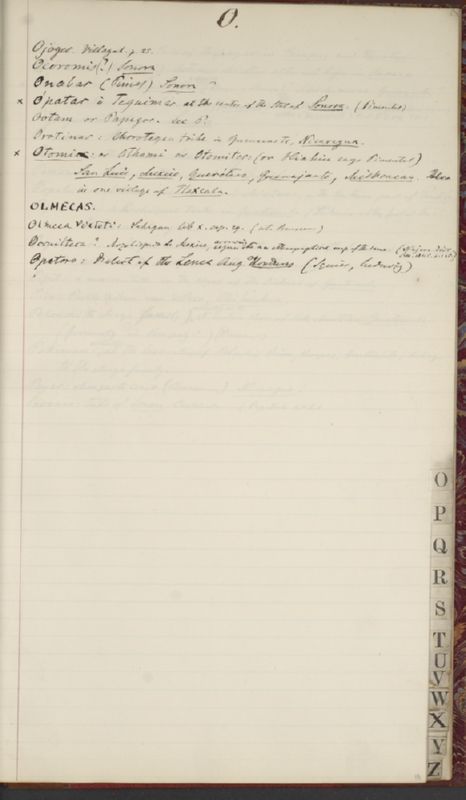 O.
Ojogoo. Villagut. p. 25.
Ocoromis(?) Sonora
Onabas (Pimas) Sonora
x Opatas o Tequimas at the center of the State of Sonora. (Pimentel)
Ootam or Papagos. see P.
Orotinas: Chorotegan tribe in Guanacaste, Nicaragua.
x Otomies: or Othomi or Otomites: (or Hiahiu says Pimentel)
San Luis, Mexico, Querétaro, Guanajuato, Michoacan. Also
in one village of Tlaxcala.
OLMECAS.
Olmeca Vixtoti: Sahagun lib X. cap. 29.
Ocuilteca: Mexico, on ethnographical map of the same.
Opatoro: Dialect of the Lenca lang. Honduras (Squier, Ludewig)
O
P
Q
R
S
T
U
V
W
X
Y
Z